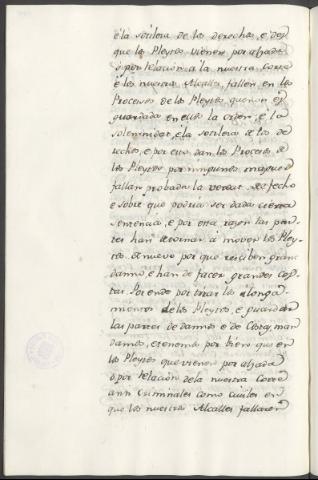 é la sotileza de los derechos, é des
que los Pleytos vienen por alzada
ó por relacion á la nuestra Corte
é los nuestros Alcalles, fallen en los
Procesos de los Pleytos, que non es
guardada en ellos la orden, é la
solennidat, é la sotileza de los de
rechos, é por esto dan los Procesos de
los Pleytos por ningunos, maguer
fallan probada la verdat del fecho
é sobre que podria ser dada cierta
sentencia, é por esta razon las par-
tes han de tornar á mover los Pley-
tos de nuevo por que resciben grand
danno, é han de facer grandes cos-
tas. Por ende por tirar los alonga
mientos de los Pleytos, é guardar
las partes de dannos é de costas, man
damos, é tenemos por bien que en
los Pleytos que vienen por alzada
ó por relacion de la nuestra Corte
ann Criminales como civiles en
que los nuestros Alcalles fallaren